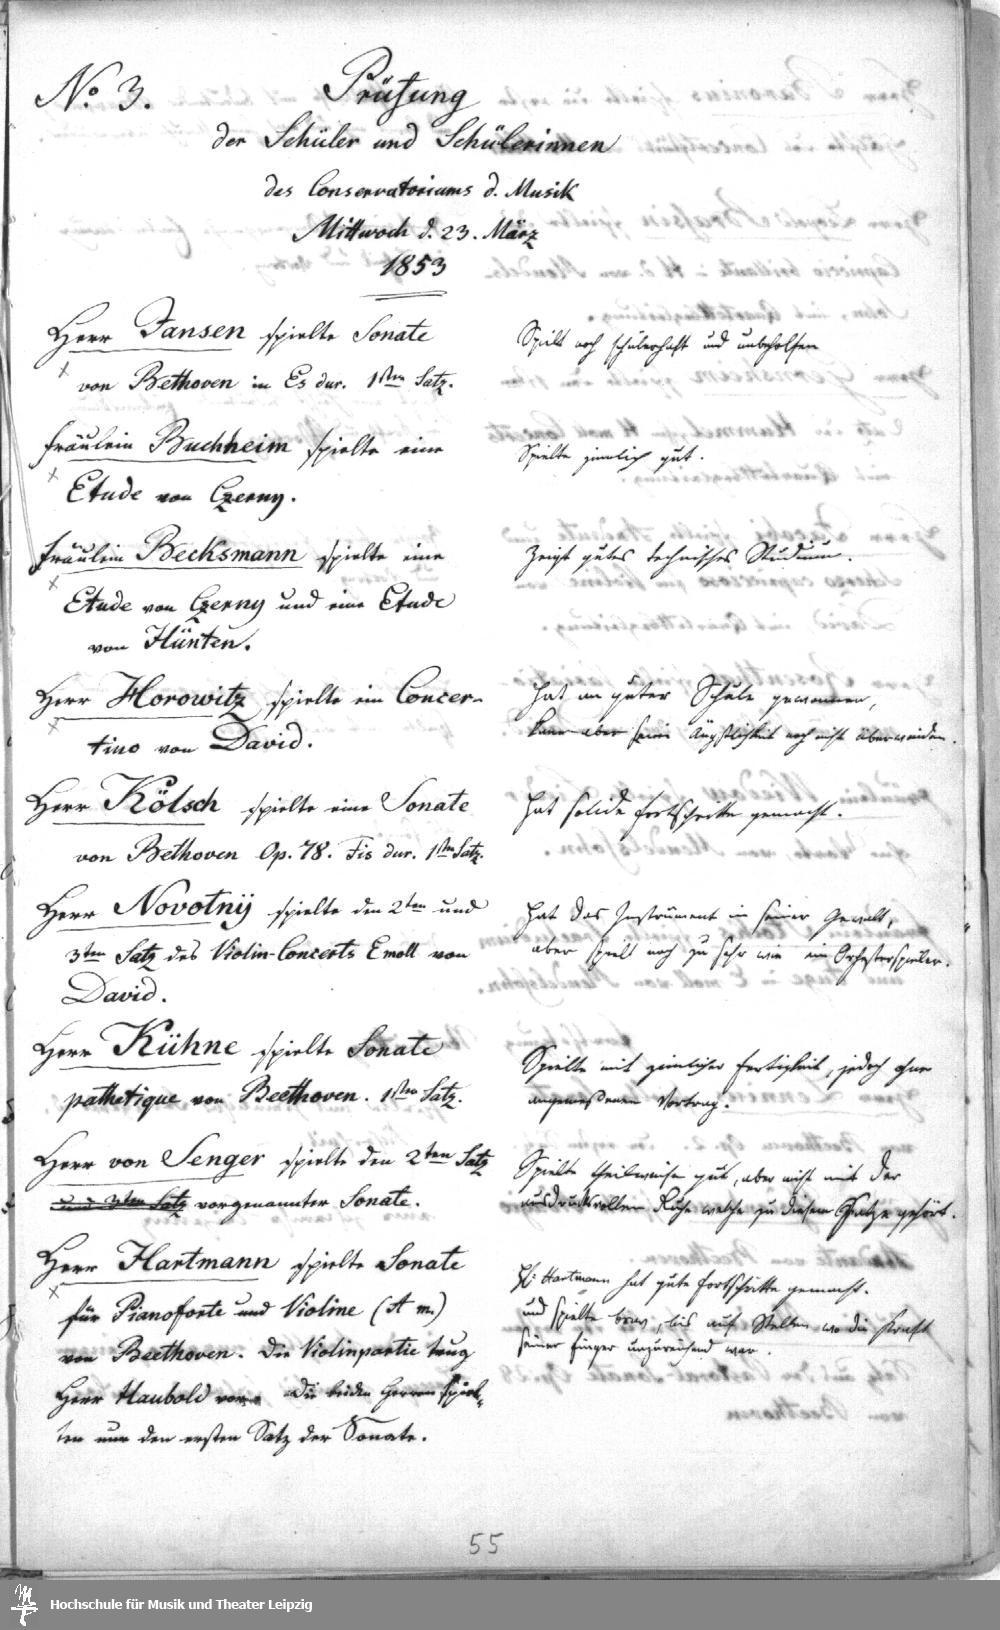 No. 3.
Prüfung
der Schüler und Schülerinnen
des Conservatoriums d. Musik
Mittwoch d. 23. März
1853
Herr Jansen spielte Sonate
von Bethoven in Es dur. 1sten Satz.
Spielt noch schülerhaft und unbeholfen
Fräulein Buchheim spielte eine
Etude von Czerny.
Spielte ziemlich gut.
Fräulein Becksmann spielte eine
Etude von Czerny und eine Etude
von Hünten.
Zeigt gutes technisches Studium.
Herr Horowitz spielte ein Concer-
tino von David.
Hat an guter Schule gewonnen,
kann aber seine Ängstlichkeit noch nicht überwinden.
Herr Kölsch spielte eine Sonate
von Bethoven Op. 78. Fis dur. 1sten Satz.
Hat solide Fortschritte gemacht.
Herr Novotnÿ spielte den 2ten und
3ten Satz des Violin-Concerts E moll von
David.
Hat das Instrument in seiner Gewalt,
aber spielt noch zu sehr wie ein Orchesterspieler.
Herr Kühne spielte Sonate
pathetique von Beethoven. 1sten Satz.
Spielte mit ziemlicher Fertigkeit, jedoch ohne
angemessenen Vortrag.
Herr von Senger spielte den 2ten Satz
und 3ten Satz vorgenannter Sonate.
Spielte theilweise gut, aber nicht mit der
ausdrucksvollen Ruhe welche zu diesem Satze gehört.
Herr Hartmann spielte Sonate
für Pianoforte und Violine (A m.)
von Beethoven. Die Violinpartie trug
Herr Haubold vor. Die beiden Herren spiel-
ten nur den ersten Satz der Sonate.
H: Hartmann hat gute Fortschritte gemacht.
und spielte brav, bis auf Stellen wo die Kraft
seiner Finger unzureichend war.
55
Hochschule für Musik und Theater Leipzig